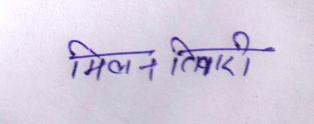 मिलन तिवारी